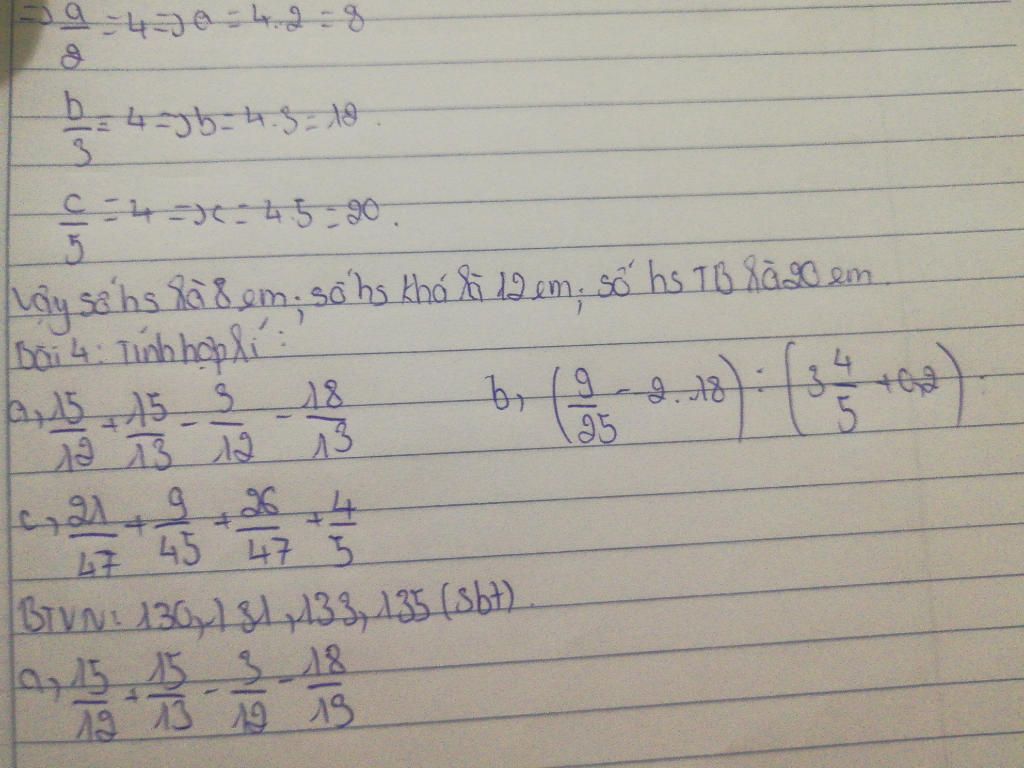 => a/2 = 4 => a = 4.2 = 8
b/3 = 4 => b = 4.3 = 12.
c/5 = 4 => c = 4.5 = 20.
Vậy số hs là 8 em; số hs khá là 12 em; số hs TB là 20 em.
Bài 4: Tính hợp lí:
a, 15/12 + 15/13 - 3/12 - 18/13 b, (9/25 - 2.18) : (3 4/5 + 0,2)
c, 21/47 + 9/45 + 26/47 + 4/5
BTVN: 130, 131, 133, 135 (sbt).
a, 15/12 + 15/13 - 3/12 - 18/13